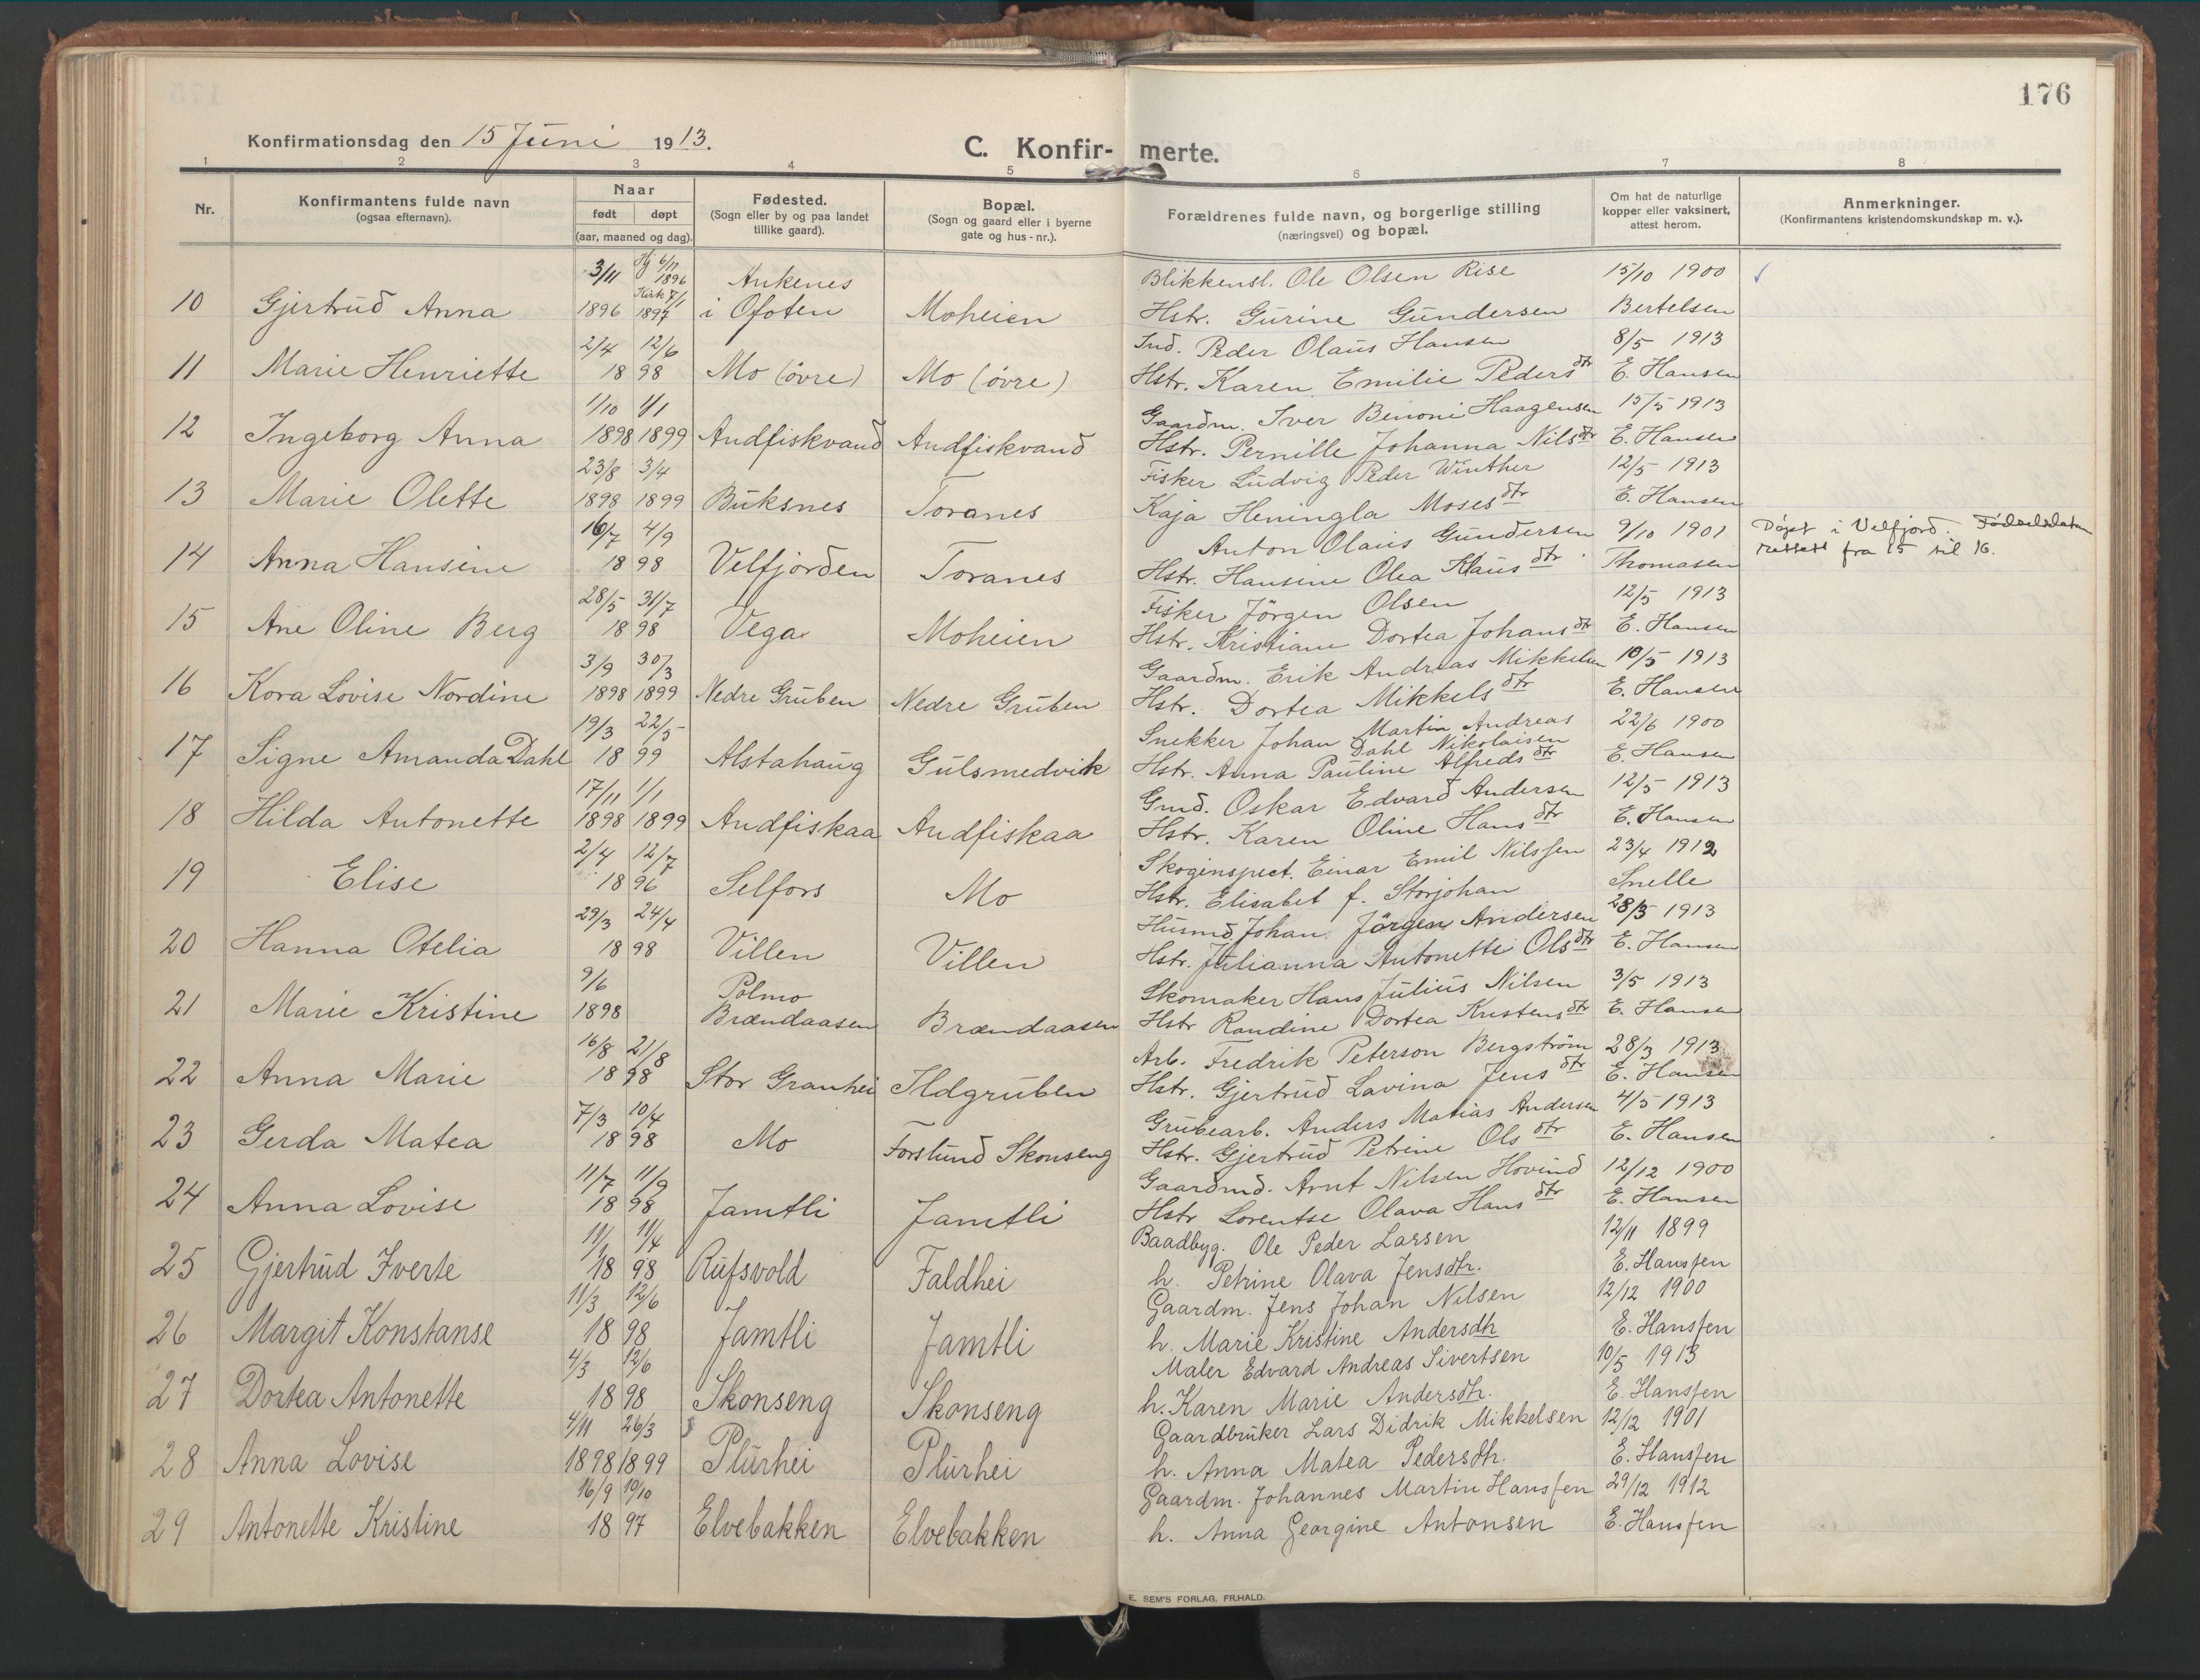 176
Konfirmationsdag den 15 Juni 1913.
C. Konfir- merte.
1 2 3 4 5 6 7 8
Nr.
Konfirmantens fulde navn
(ogsaa efternavn).
Naar
født døpt
(aar, maaned og dag).
Fødested.
(Sogn eller by og paa landet
tillike gaard).
Bopæl.
(Sogn og gaard eller i byerne
gate og hus-nr.).
Forældrenes fulde navn, og borgerlige stilling
(næringsvei) og bopæl.
Om hat de naturlige
kopper eller vaksinert,
attest herom.
Anmerkninger.
(Konfirmantens kristendomskundskap m. v.).
3/11 Hj 6/11 1896 Ankenes Blikkensl. Ole Olsen Rise 15/10 1900
10 Gjertrud Anna 1896 Kirk 7/1 1897 i Ofoten Moheien Hstr. Gurine Gundersen Bertelsen
2/4 12/6 Ind. Peder Olaus Hansen 8/5 1913
11 Marie Henriette 18 98 Mo (övre) Mo (övre) Hstr. Karen Emilie Pedersdtr E. Hansen
1/10 1/1 Gaardm. Iver Benoni Haagensen 15/5 1913
12 Ingeborg Anna 1898 1899 Andfiskvand Andfiskvand Hstr. Pernille Johanna Nilsdtr E. Hansen
23/8 3/4 Fisker Ludvig Peder Winther 12/5 1913
13 Marie Olette 1898 1899 Buksnes Toranes Kaja Heningla Mosesdtr E. Hansen
16/7 4/9 Anton Olaus Gundersen 9/10 1901 Døpt i Velfjord. Fødselsdatum
14 Anna Hansine 18 98 Velfjorden Toranes Hstr. Hansine Olea Klausdtr. Thomasen rettet fra 15 til 16.
28/5 31/7 Fisker Jörgen Olsen 12/5 1913
15 Ane Oline Berg 18 98 Vega Moheien Hstr. Kristiane Dortea Johansdtr E. Hansen
3/9 30/3 Gaardm. Erik Andreas Mikkelsen 10/5 1913
16 Kora Lovise Nordine 1898 1899 Nedre Gruben Nedre Gruben Hstr. Dortea Mikkelsdtr E. Hansen
19/3 22/5 Snekker Johan Martin Andreas Dahl Nikolaisen 22/6 1900
17 Signe Amanda Dahl 18 99 Alstahaug Gulsmedvik Hstr. Anna Pauline Alfredsdtr E. Hansen
17/11 1/1 Gmd. Oskar Edvard Andersen 12/5 1913
18 Hilda Antonette 1898 1899 Andfiskaa Andfiskaa Hstr. Karen Oline Hansdtr E. Hansen
2/4 12/7 Skoginspect. Einar Emil Nilssen 23/4 1912
19 Elise 18 96 Selfors Mo Hstr. Elisabet f. Storjohan Snelle
29/3 24/4 Husmd Johan Jörgen Andersen 28/5 1913
20 Hanna Otelia 18 98 Villen Villen Hstr. Julianna Antonette Olsdtr E. Hansen
9/6 Polmo Skomaker Hans Julius Nilsen 3/5 1913
21 Marie Kristine 1898 Brændaasen Brændaasen Hstr Randine Dortea Kristensdtr E. Hansen
16/8 21/8 Arb. Fredrik Peterson Bergström 28/3 1913
22 Anna Marie 18 98 Stor Granhei Ildgruben Hstr. Gjertrud Lavina Jensdtr E. Hansen
7/3 10/4 Grubearb. Anders Matias Andersen 4/5 1913
23 Gerda Matea 18 98 Mo Forslund Skonseng Hstr. Gjertrud Petrine Olsdtr E. Hansen
11/7 11/9 Gaardmd. Arnt Nilsen Hovind 12/12 1900
24 Anna Lovise 18 98 Jamtli Jamtli Hstr Lorentse Olava Hansdtr E. Hansen
11/1 11/4 Baadbyg. Ole Peder Larsen 12/11 1899
25 Gjertrud Iverte 18 98 Rufsvold Faldhei h. Petrine Olava Jensdtr. E. Hanssen
11/3 12/6 Gaardm. Jens Johan Nilsen 12/12 1900
26 Margit Konstanse 18 98 Jamtli Jamtli h. Marie Kristine Andersdtr E. Hanssen
4/3 12/6 Maler Edvard Andreas Sivertsen 10/5 1913
27 Dortea Antonette 18 98 Skonseng Skonseng h. Karen Marie Andersdtr. E. Hanssen
4/11 26/3 Gaardbruker Lars Didrik Mikkelsen 12/12 1901
28 Anna Lovise 1898 1899 Plurhei Plurhei h. Anna Matea Pedersdtr. E. Hanssen
16/9 10/10 Gaardm. Johannes Martin Hanssen 29/12 1912
29 Antonette Kristine 18 97 Elvebakken Elvebakken h. Anna Georgine Antonsen E. Hanssen
E. SEM'S FORLAG. FR.HALD.